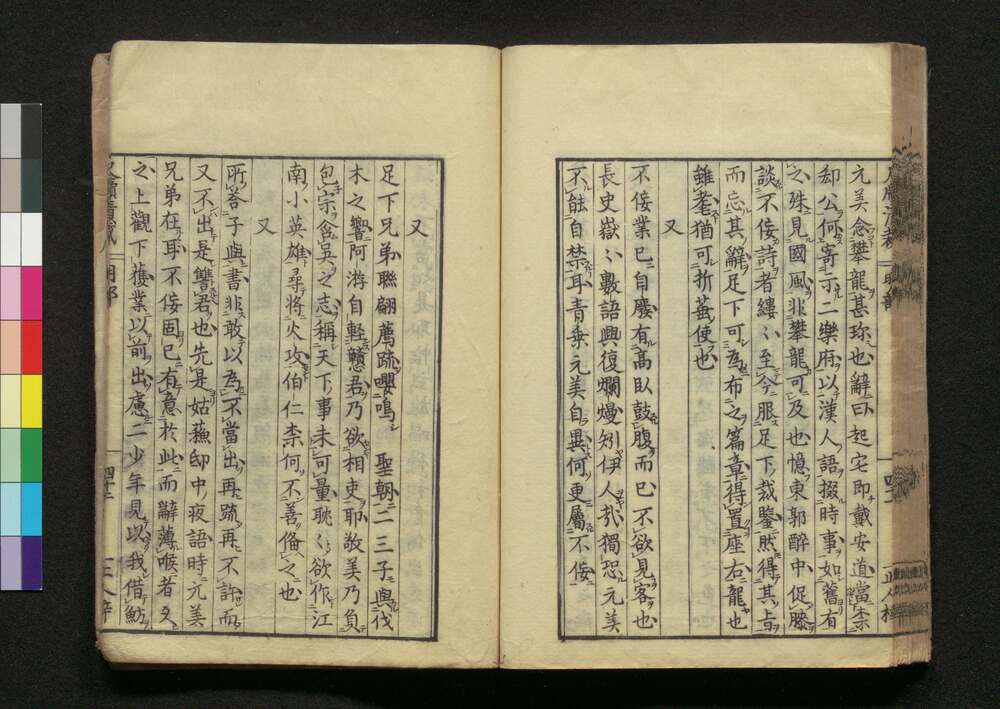 元美念攀龍甚珎也辭曰起宅即戴安道當柰
却公何寄示二樂府以漢人語掇時事如舊有
之殊見國風非攀龍可及也憶東郭醉中促膝
談不佞詩者縷〻至今服足下裁鑒然得其旨
而忘其辭足下可為布之篇章得置座右龍也
雖耄猶可折葼使也
又
不佞業已自廢有高臥鼓腹而已不欲見客也
長史嶽〻數語興復爛熳矧伊人哉獨恐元美
不能自禁耳青乗元美自異何更屬不佞
又
足下兄弟聯翩薦疏嚶鳴 聖朝二三子與伐
木之響阿游自輕戇君乃欲相吏耶敬美乃負
包宗含吳之志稱天下事未可量耽〻欲作江
南小英雄尋將火攻伯仁柰何不善備之也
所答子與書非敢以為不當出再疏再不許而
又不出是讐君也先是姑蘓邸中夜語時元美
兄弟在耳不佞固已有意於此而辭薄喉者久
之上觀下獲業以前出慮二少年見以我借魴
四十二